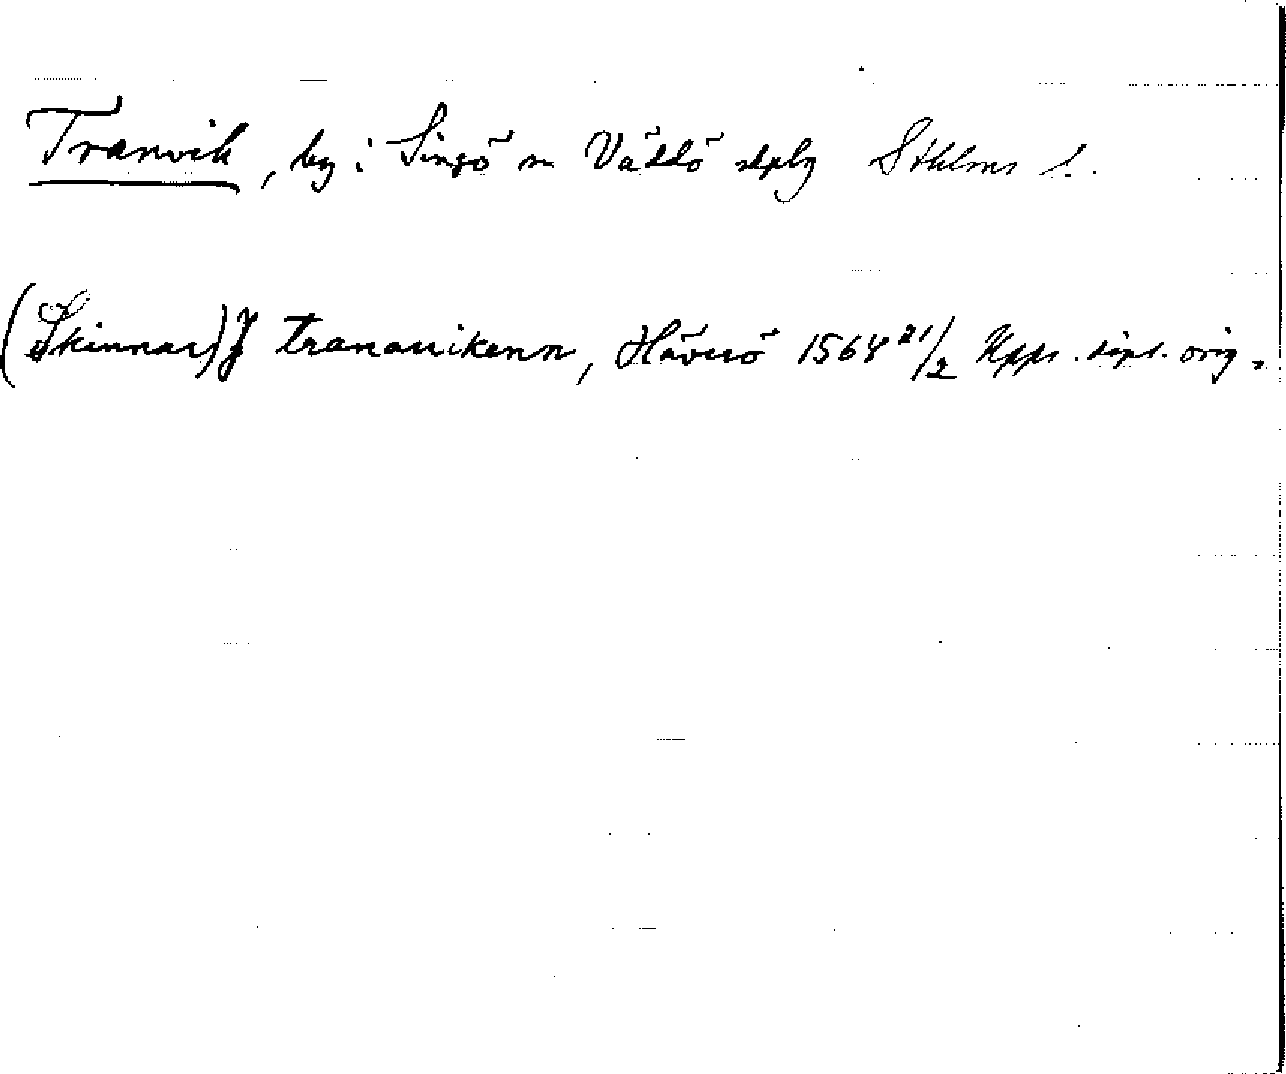 Tranvik, by i Singö sn Väddö skplg Sthlms l.
(Skinnar) J tranauikenn, Häverö 1564 21/2 Upps. dipl. orig.